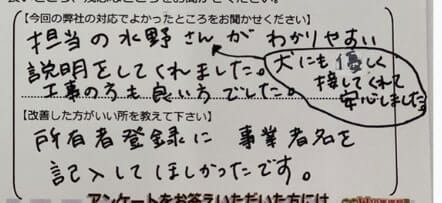 【今回の弊社の対応でよかったところをお聞かせください】
担当の水野さんがわかりやすい
説明をしてくれました。
工事の方も良い方でした。
犬にも優しく
接してくれて
安心しました
【改善した方がいい所を教えて下さい】
所有者登録に 事業者名を
記入してほしかったです。
アンケートをお答えいただいた方には